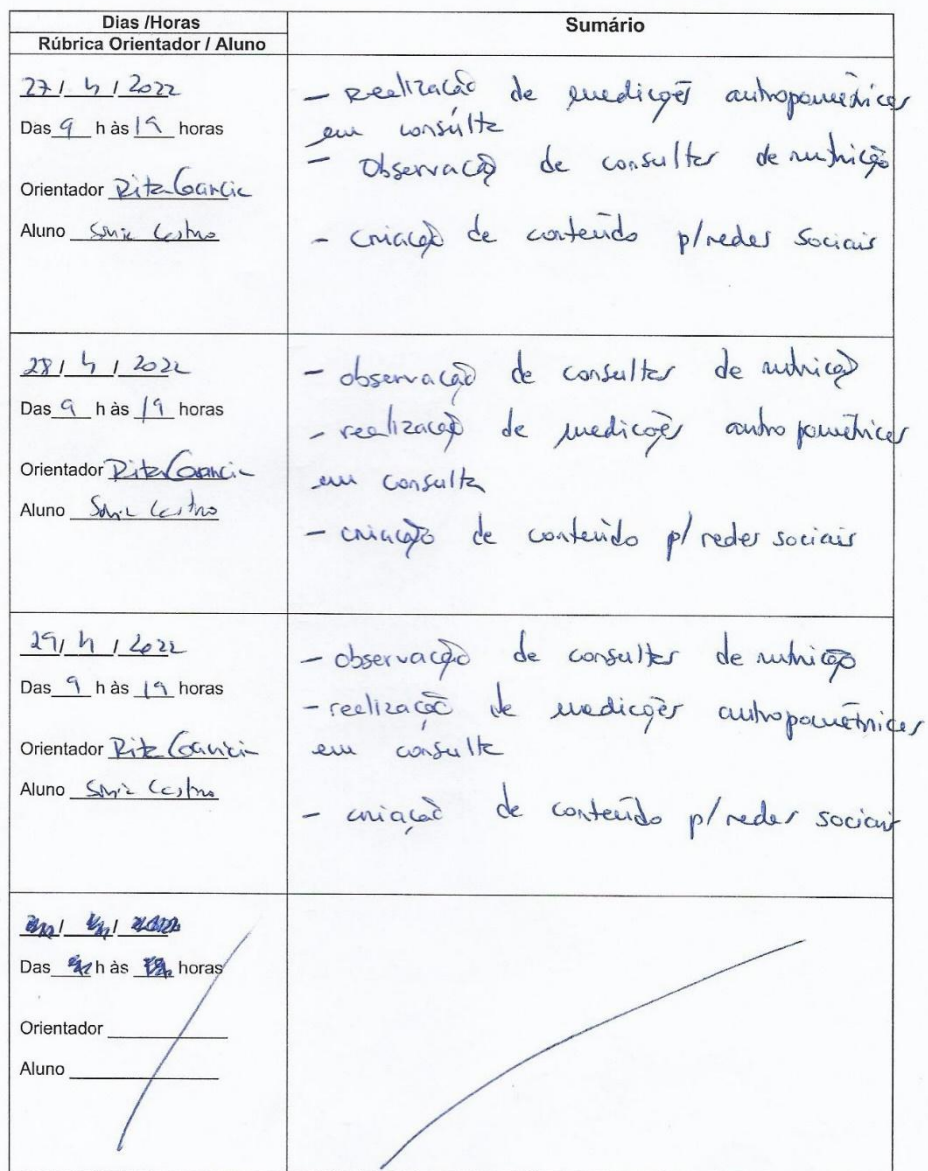 Dias /Horas
Rúbrica Orientador / Aluno
Sumário
27/ 4 / 2022
Das 9 h às 19 horas
Orientador Rita Garcia
Aluno Sónia Castro
- Realização de medições antropométricas
em consulta
- Observação de consultas de nutrição
- Criação de conteúdo p/redes sociais
28/ 4 / 2022
Das 9 h às 19 horas
Orientador Rita Garcia
Aluno Sónia Castro
- observação de consultas de nutrição
- realização de medições antropométricas
em consulta
- criação de conteúdo p/ redes sociais
29/ 4 / 2022
Das 9 h às 19 horas
Orientador Rita Garcia
Aluno Sónia Castro
- observação de consultas de nutrição
- realização de medições antropométricas
em consulta
- criação de conteúdo p/ redes sociais
Das h às horas
Orientador
Aluno